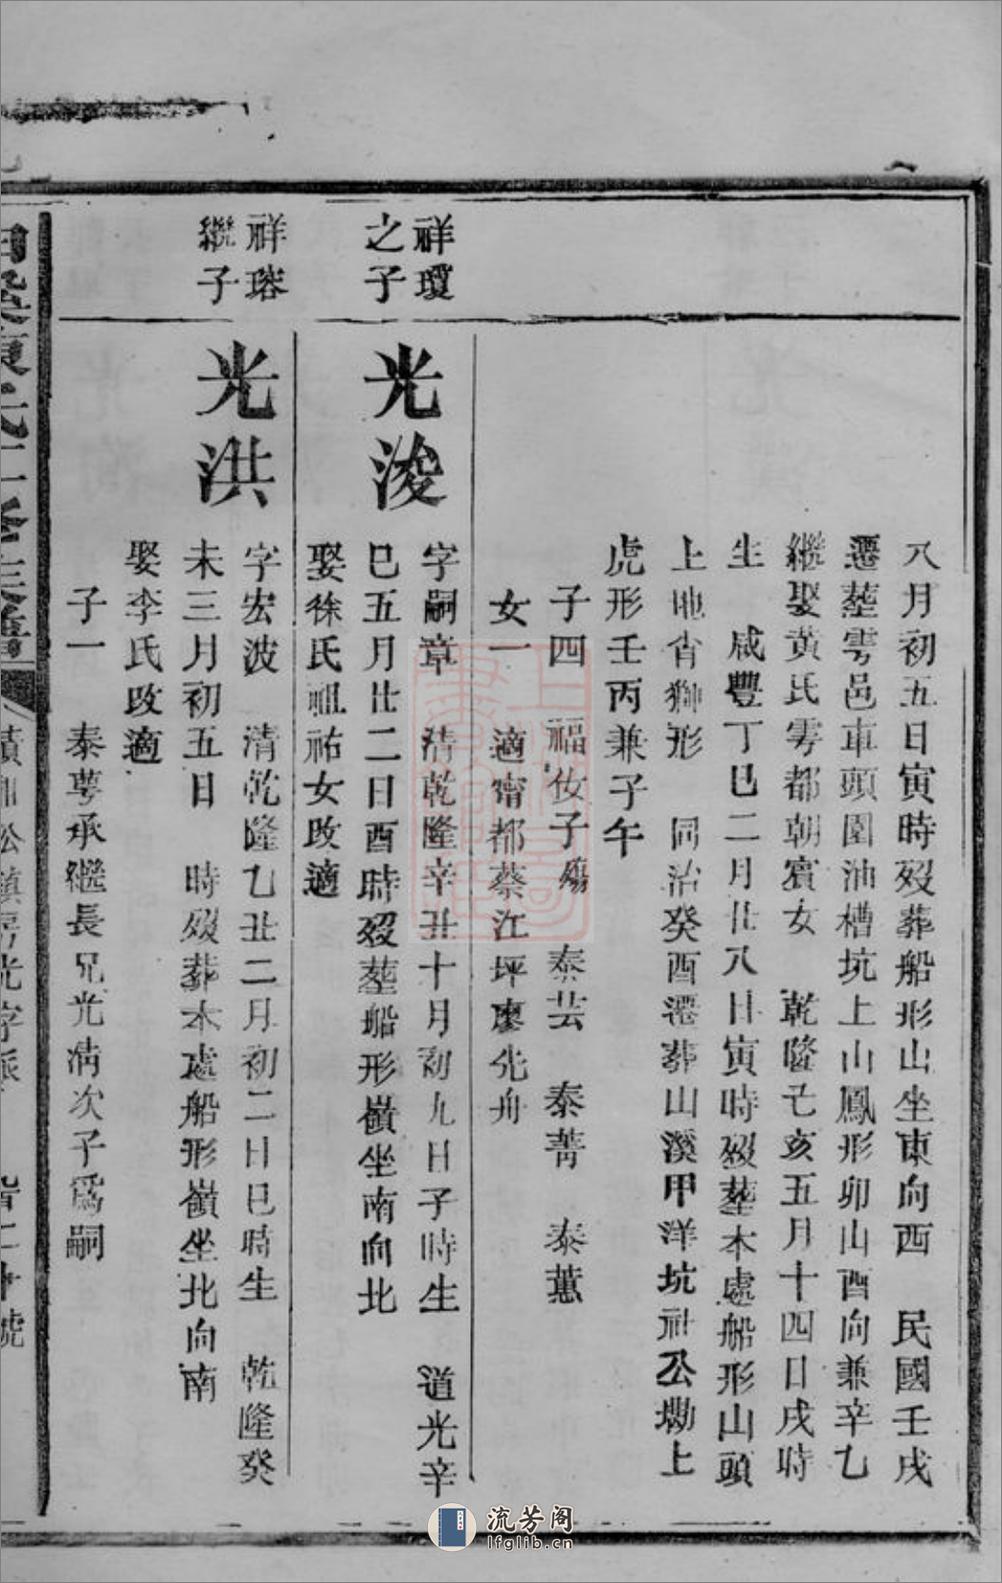 八月初五日寅時歿葬船形山坐東向西　民國壬戌
遷塟雩邑車頭圍油槽坑上山鳳形卯山酉向兼辛乙
繼娶黄氏雩都朝賓女　乾隆己亥五月十四日戌時
生　咸豐丁巳二月廿八日寅時歿塟本處船形山頭
上地省獅形　同治癸酉遷葬山溪甲洋坑社公墈上
虎形壬丙兼子午
子四　福伩子殤　泰芸　泰菁　泰蕙
女一　適甯都蔡江坪廖先舟
祥瓊
之子
光浚
字嗣章　清乾隆辛丑十月初九日子時生　道光辛
巳五月廿二日酉時歿塟船形嶺坐南向北
娶徐氏祖祐女改適
祥瑢
繼子
光洪
字宏波　清乾隆乙丑二月初二日巳時生　乾隆癸
未三月初五日　時歿葬本處船形嶺坐北向南
娶李氏改適
子一　泰萼承繼長兄光清次子爲嗣
氏
公鎮房光字派
流芳阁
lfglib.cn